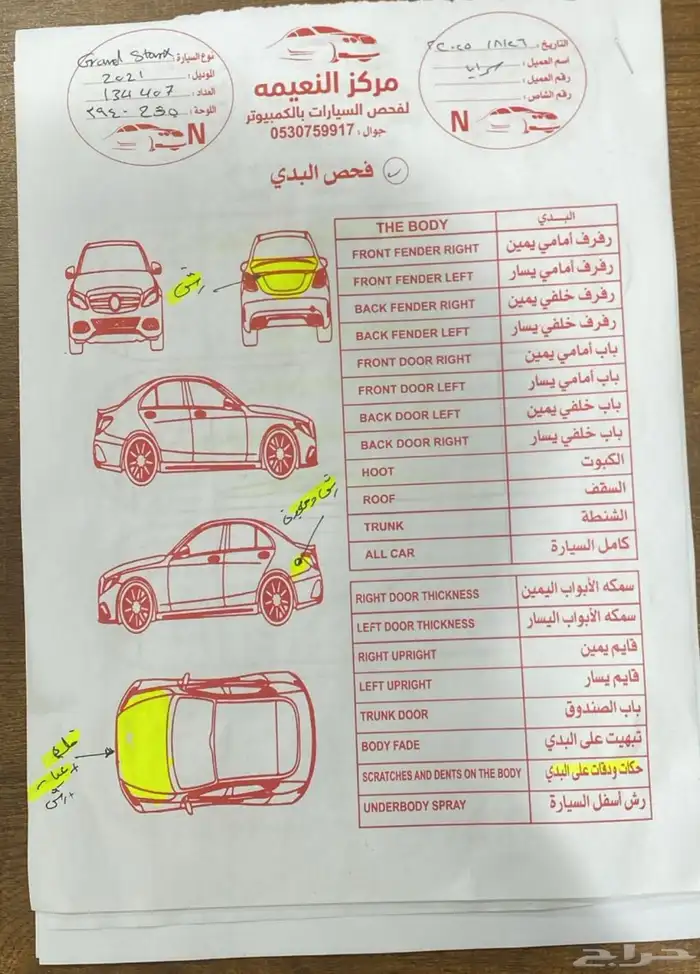 نوع السيارة:
الموديل: 2021
العداد: 134407
اللوحة:
N
مركز النعيمه
لفحص السيارات بالكمبيوتر
جوال: 0530759917
التاريخ:
اسم العميل:
رقم العميل:
رقم الشاص:
N
فحص البدي
رش
THE BODY البــدي
FRONT FENDER RIGHT رفرف أمامي يمين
FRONT FENDER LEFT رفرف أمامي يسار
BACK FENDER RIGHT رفرف خلفي يمين
BACK FENDER LEFT رفرف خلفي يسار
FRONT DOOR RIGHT باب أمامي يمين
FRONT DOOR LEFT باب أمامي يسار
BACK DOOR LEFT باب خلفي يمين
BACK DOOR RIGHT باب خلفي يسار
HOOT الكبوت
ROOF السقف
TRUNK الشنطة
ALL CAR كامل السيارة
RIGHT DOOR THICKNESS سمكه الأبواب اليمين
LEFT DOOR THICKNESS سمكه الأبواب اليسار
RIGHT UPRIGHT قايم يمين
LEFT UPRIGHT قايم يسار
TRUNK DOOR باب الصندوق
BODY FADE تبهيت على البدي
SCRATCHES AND DENTS ON THE BODY حكات ودقات على البدي
UNDERBODY SPRAY رش أسفل السيارة
حراج